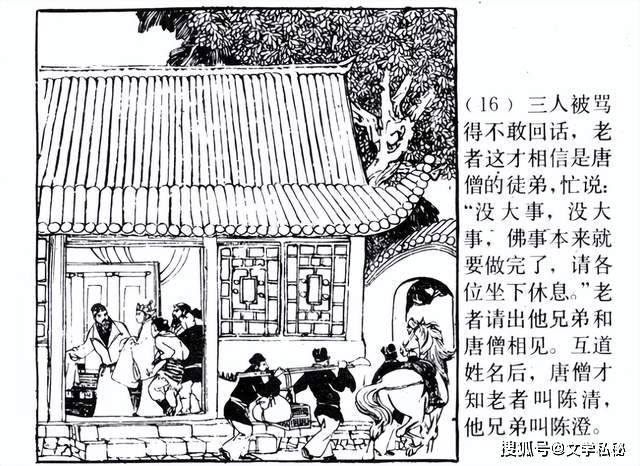 （16）三人被骂
得不敢回话，老
者这才相信是唐
僧的徒弟，忙说：
“没大事，没大
事，佛事本来就
要做完了，请各
位坐下休息。”老
者请出他兄弟和
唐僧相见。互道
姓名后，唐僧才
知老者叫陈清，
他兄弟叫陈澄。
搜狐号@文学私秘